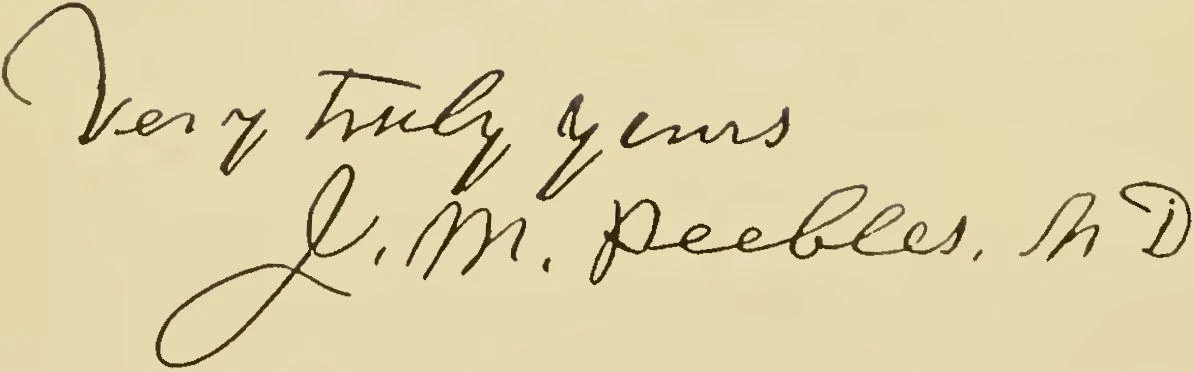 Very truly yours
J. M. Peebles, M D